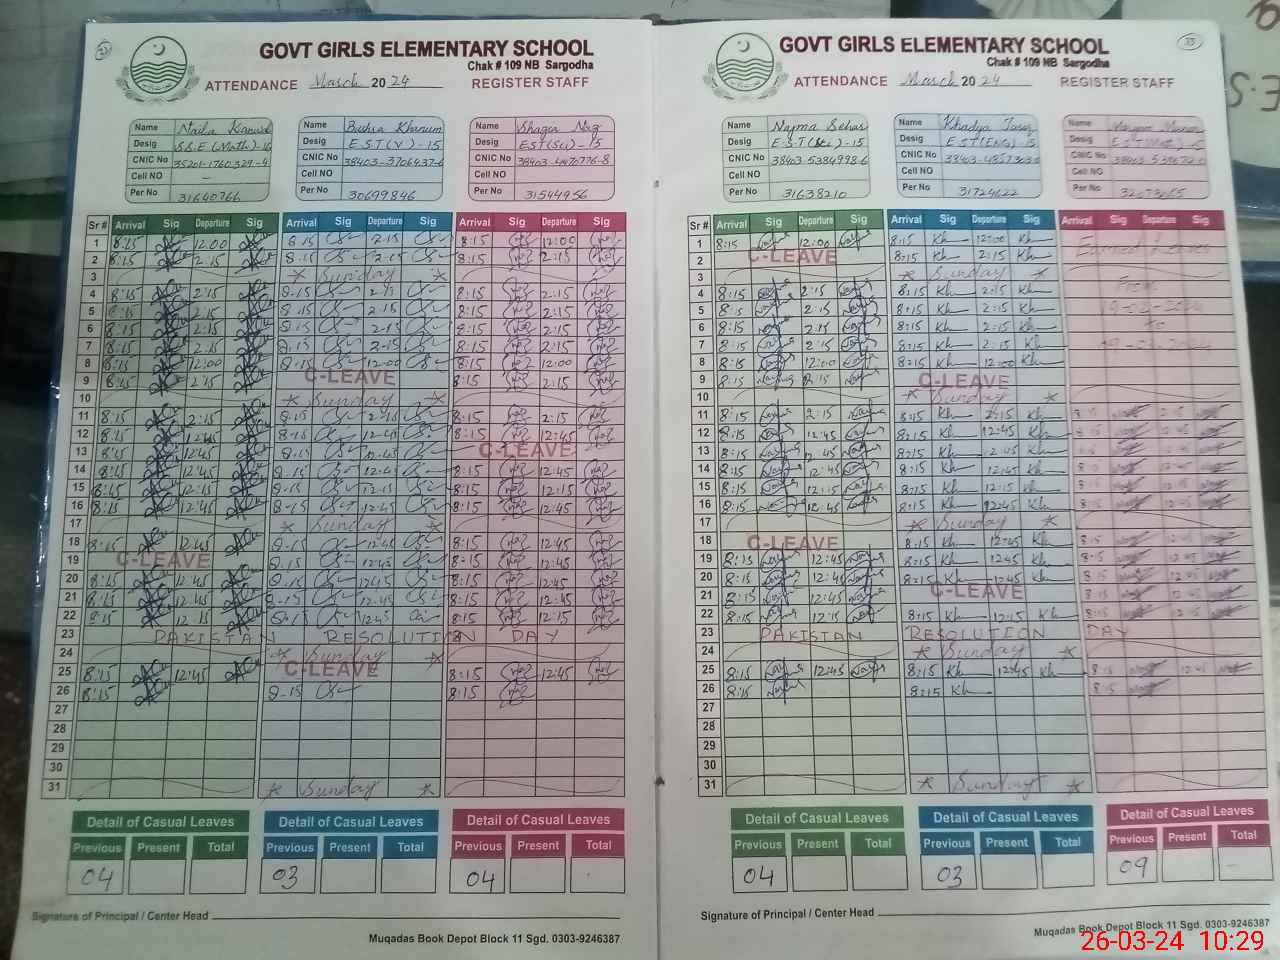 GOVT GIRLS ELEMENTARY SCHOOL
Chak # 109 NB Sargodha
ATTENDANCE March 2024 REGISTER STAFF
Name Naila
Desig S.S.E (Math)-16
CNIC No
Cell NO -
Per No 31640766
Name Bushra Khanum
Desig E.S.T (V) - 15
CNIC No 38403-3706437-6
Cell NO
Per No 30699846
Name Shagu Naz
Desig EST(Sci) - 15
CNIC No
Cell NO
Per No 31544956
Sr # Arrival Sig Departure Sig Arrival Sig Departure Sig Arrival Sig Departure Sig
1 8:15 12:00 8.15 2.15 8:15 12:00
2 8:15 2:15 8.15 2.15 8:15 2:15
3 * Sunday *
4 8:15 2:15 8.15 2.15 8:15 2:15
5 8:15 2:15 8.15 2.15 8:15 2:15
6 8:15 2:15 8.15 2.15 8:15 2:15
7 8:15 2:15 8.15 2.15 8:15 2:15
8 8:15 12:00 8.15 12.00 8:15 12:00
9 8:15 2:15 C-LEAVE 8:15 2:15
10 * Sunday *
11 8:15 2:15 8.15 2.15 8:15 2:15
12 8:15 12:45 8.15 12.45 8:15 12:45
13 8:15 12:45 8.15 12.45 C-LEAVE
14 8:15 12:45 8.15 12.45 8:15 12:45
15 8:15 12:15 8.15 12.15 8:15 12:15
16 8:15 12:45 8.15 12.45 8:15 12:45
17 * Sunday *
18 8:15 12:45 8.15 12.45 8:15 12:45
19 C-LEAVE 8.15 12.45 8:15 12:45
20 8:15 12:45 8.15 12.45 8:15 12:45
21 8:15 12:45 8.15 12.45 8:15 12:45
22 8:15 12:15 8.15 12.45 8:15 12:15
23 PAKISTAN RESOLUTION DAY
24 * Sunday *
25 8:15 12:45 C-LEAVE 8:15 12:45
26 8:15 8.15 8:15
27
28
29
30
31 * Sunday *
Detail of Casual Leaves Detail of Casual Leaves Detail of Casual Leaves
Previous Present Total Previous Present Total Previous Present Total
04 03 04
Signature of Principal / Center Head
Muqadas Book Depot Block 11 Sgd. 0303-9246387
GOVT GIRLS ELEMENTARY SCHOOL
Chak # 109 NB Sargodha
ATTENDANCE March 2024 REGISTER STAFF
Name Najma Sehar
Desig E.S.T (Sci) - 15
CNIC No 38403-5384998-6
Cell NO
Per No 31638210
Name Khadija
Desig EST(Eng)-15
CNIC No
Cell NO
Per No 31724622
Name Maryam
Desig
CNIC No
Cell NO
Per No
Sr # Arrival Sig Departure Sig Arrival Sig Departure Sig Arrival Sig Departure Sig
1 8:15 12:00 8:15 Kh 12:00 Kh Earned Leaves
2 C-LEAVE 8:15 Kh 2:15 Kh
3 * Sunday *
4 8:15 2:15 8:15 Kh 2:15 Kh From
5 8:15 2:15 8:15 Kh 2:15 Kh 19-02-2024
6 8:15 2:15 8:15 Kh 2:15 Kh to
7 8:15 2:15 8:15 Kh 2:15 Kh 09-03-2024
8 8:15 12:00 8:15 Kh 12:00 Kh
9 8:15 2:15 C-LEAVE
10 * Sunday *
11 8:15 2:15 8:15 Kh 2:15 Kh 8:15 2:15
12 8:15 12:45 8:15 Kh 12:45 Kh 8:15 12:45
13 8:15 12:45 8:15 Kh 12:45 Kh 8:15 12:45
14 8:15 12:45 8:15 Kh 12:45 Kh 8:15 12:45
15 8:15 12:15 8:15 Kh 12:15 Kh 8:15 12:15
16 8:15 12:45 8:15 Kh 12:45 Kh 8:15 12:45
17 * Sunday *
18 C-LEAVE 8:15 Kh 12:45 Kh 8:15 12:45
19 8:15 12:45 8:15 Kh 12:45 Kh 8:15 12:45
20 8:15 12:45 8:15 Kh 12:45 Kh 8:15 12:45
21 8:15 12:45 C-LEAVE 8:15 12:45
22 8:15 12:15 8:15 Kh 12:15 Kh 8:15 12:15
23 PAKISTAN RESOLUTION DAY
24 * Sunday *
25 8:15 12:45 8:15 Kh 12:45 Kh 8:15 12:45
26 8:15 8:15 Kh 8:15
27
28
29
30
31 * Sunday *
Detail of Casual Leaves Detail of Casual Leaves Detail of Casual Leaves
Previous Present Total Previous Present Total Previous Present Total
04 03 09 -
Signature of Principal / Center Head
Muqadas Book Depot Block 11 Sgd. 0303-9246387
26-03-24 10:29